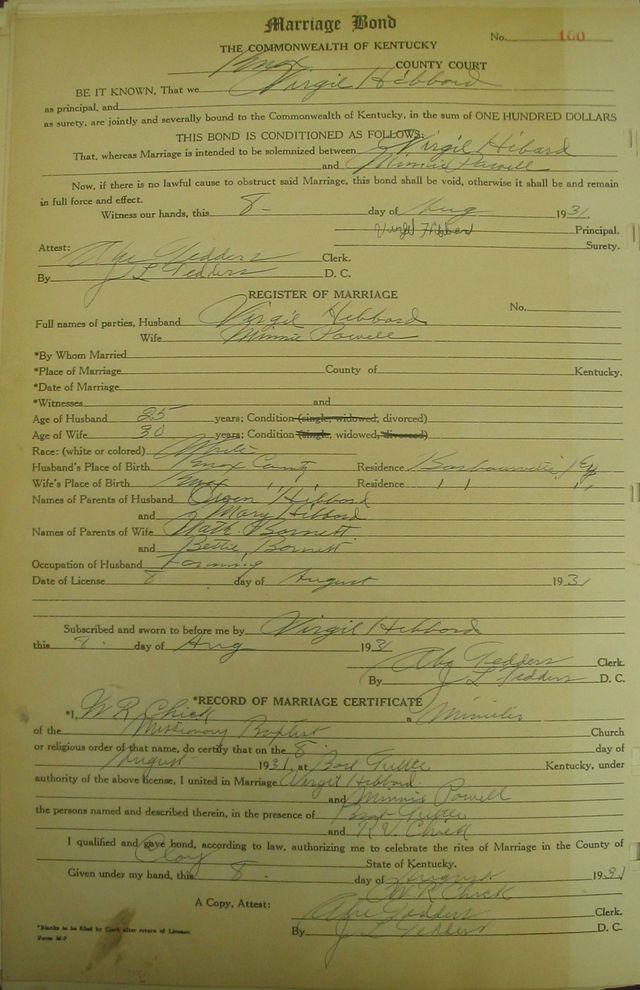 Marriage Bond
No. 100
THE COMMONWEALTH OF KENTUCKY
Knox COUNTY COURT
BE IT KNOWN, That we Virgil Hibbard
as principal, and
as surety, are jointly and severally bound to the Commonwealth of Kentucky, in the sum of ONE HUNDRED DOLLARS
THIS BOND IS CONDITIONED AS FOLLOWS:
That, whereas Marriage is intended to be solemnized between Virgil Hibard
and Minnie Powell
Now, if there is no lawful cause to obstruct said Marriage, this bond shall be void, otherwise it shall be and remain
in full force and effect.
Witness our hands, this 8- day of Aug 1931.
Virgil Hibbard Principal.
Attest: Surety.
Abe Tedders Clerk.
By J L Tedders D. C.
REGISTER OF MARRIAGE
No.
Full names of parties, Husband Virgil Hibbard
Wife Minnie Powell
*By Whom Married
*Place of Marriage County of Kentucky.
*Date of Marriage
*Witnesses and
Age of Husband 25 years; Condition (single, widowed, divorced)
Age of Wife 30 years; Condition (single, widowed, divorced)
Race: (white or colored) White
Husband's Place of Birth Knox County Residence Barbourville, Ky
Wife's Place of Birth Knox " " Residence " " "
Names of Parents of Husband Hibbard
and Mary Hibbard
Names of Parents of Wife Nath Barnett
and Bettie Barnett
Occupation of Husband Farming
Date of License 8 day of August 1931
Subscribed and sworn to before me by Virgil Hibbard
this 8. day of Aug 1931
Abe Tedders Clerk.
By J L Tedders D. C.
*RECORD OF MARRIAGE CERTIFICATE
*I, W R Chick a Minister
of the Missionary Baptist Church
or religious order of that name, do certify that on the 8 day of
August 1931, at Kentucky, under
authority of the above license, I united in Marriage Virgil Hibbard
and Minnie Powell
the persons named and described therein, in the presence of
and R.V. Chick
I qualified and gave bond, according to law, authorizing me to celebrate the rites of Marriage in the County of
Clay State of Kentucky.
Given under my hand, this 8. day of August 1931
W R Chick
A Copy, Attest: Abe Tedders Clerk.
By J L Tedders D. C.
*Blanks to be filed by Clerk after return of License.
Form M-7